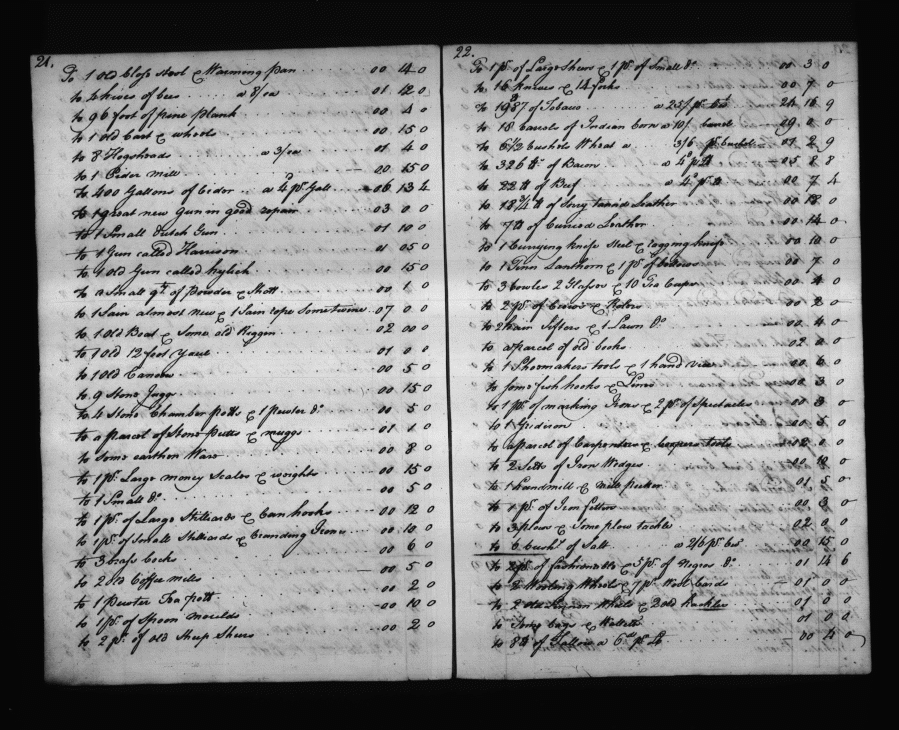 21.
To 1 old Close stool & Warming pan 00 14 0
to 4 hives of bees a 8/ea 01 12 0
to 96 foot of pine plank 00 4 0
to 1 old Cart & wheels 00 15 0
to 8 Hogsheads a 3/ea 01 4 0
to 1 Sider mill 00 15 0
to 400 Gallons of Cedor a 4d pr Gall 06 13 4
to 1 great new Gun in good repair 03 0 0
to 1 Small Dutch Gun 01 10 0
to 1 Gun called Harrison 01 05 0
to 1 old Gun called 00 15 0
to a Small qt of Powder & Shott 00 1 0
to 1 Sain almost new & 1 Sain rope Some twine 07 0 0
to 1 Old Boat & Some old Riggin 02 00 0
to 1 Old 12 foot Yaul 01 0 0
to 1 Old Canoe 00 5 0
to 9 Stone Juggs 00 15 0
to 4 Stone Chamber potts & 1 pewter Do 00 5 0
to a parcel of Stone & muggs 01 1 0
to Some earthen Ware 00 8 0
to 1 pr Large money Scales & weights 00 15 0
to 1 Small Do 00 5 0
to 1 pr of Large Stilliards & Can hooks 00 12 0
to 1 pr of Small Stilliards & Branding Irons 00 10 0
to 3 brass Cocks 00 6 0
to 2 old Coffee mills 00 5 0
to 1 pewter Tea pott 00 2 0
to 1 pr of Spoon moulds 00 10 0
to 2 pr of old Sheep Shears 00 2 0
22.
To 1 pr of Large Shears & 1 pr of Small Do 00 3 0
to 16 knives & 14 forks 00 7 0
to 1987 of Tobaco a 25/ pr 24 16 9
to 18 barrels of Indian Corn a 10/ barrel 09 0 0
to 6½ bushels Wheat a 3/6 pr bushel 01 2 9
to 326 lb of Bacon a 4d pr lb 05 8 8
to 22 lb of Beef a 4d pr lb 00 7 4
to 18¾ lb of Leather 00 18 0
to 7 lb of Curried Leather 00 14 0
to 1 Currying knife Steel & knife 00 10 0
to 1 Tinn Lanthorn & 1 pr of bellows 00 7 0
to 3 bowles 2 Glasses & 10 Tea Cups 00 4 0
to 2 pr of & 00 2 0
to 2 hair Sifters & 1 Lawn Do 00 4 0
to a parcel of old books 02 0 0
to 1 Shoemakers tools & 1 hand vice 00 6 0
to Some fish hooks & Lines 00 3 0
to 1 pr of marking Irons & 2 pr of Spectacles 00 3 0
to 1 Gridiron 00 5 0
to a parcel of Carpenters & Coopers tools 0 0
to 2 Setts of Iron Wedges 00 10 0
to 1 handmill & mill pecker 01 5 0
to 1 pr of Iron fetters 00 3 0
to 3 plows & Some plow tackle 02 0 0
to 6 bushs of Salt a 2/6 pr bus 00 15 0
to 2 pr of & 5 pr of Negros Do 01 14 6
to 2 Wooling Wheels & 7 pr Wool Cards 01 0 0
to 2 old Linnen Wheels & 2 old hackles 01 0 0
to Some bags & Wallets 01 0 0
to 8 lb of Tallow a 6d pr lb 00 4 0